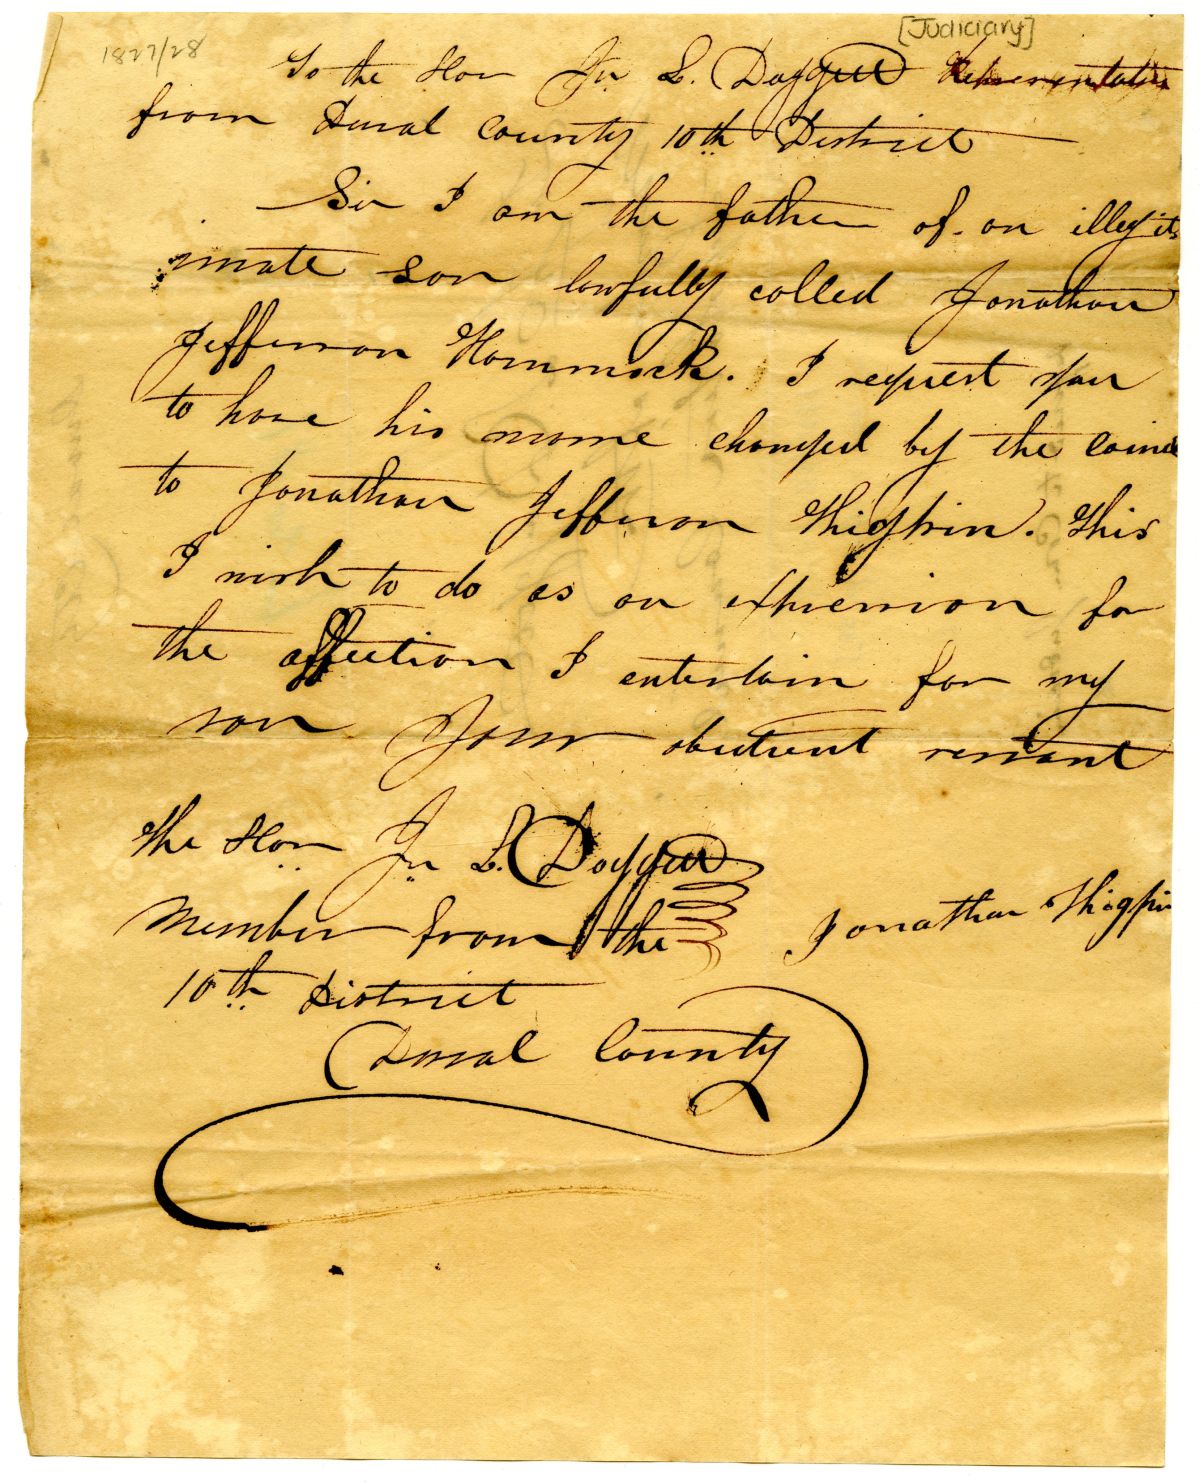 [Judiciary]
1827/28
To the Hon Jn L. Doggett Representative
from Duval County 10th District
Sir I am the father of an illegit
imate son lawfully called Jonathan
Jefferson Hammock. I request you
to have his name changed by the Council
to Jonathan Jefferson Thigpin. This
I wish to do as an expression for
the affection I entertain for my
son Your obedient servant
The Hon Jn L. Doggett
Member from the
Jonathan Thigpin
10th District
Duval County